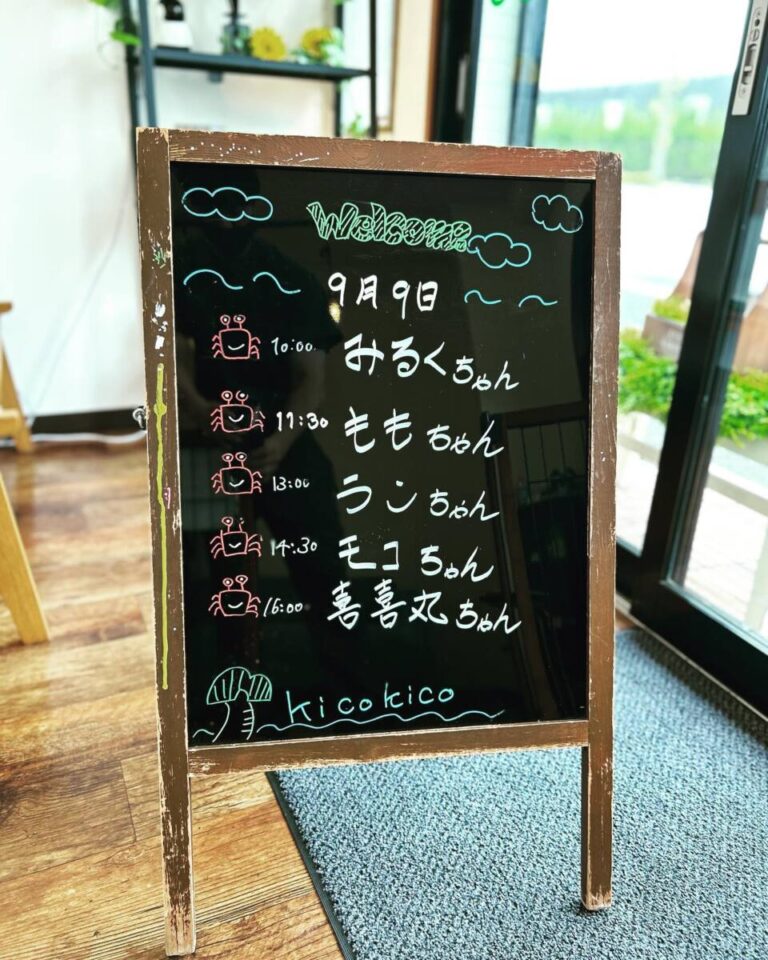 Welcome
9月9日
10:00 みるくちゃん
11:30 ももちゃん
13:00 ランちゃん
14:30 モコちゃん
16:00 喜喜丸ちゃん
kicokico